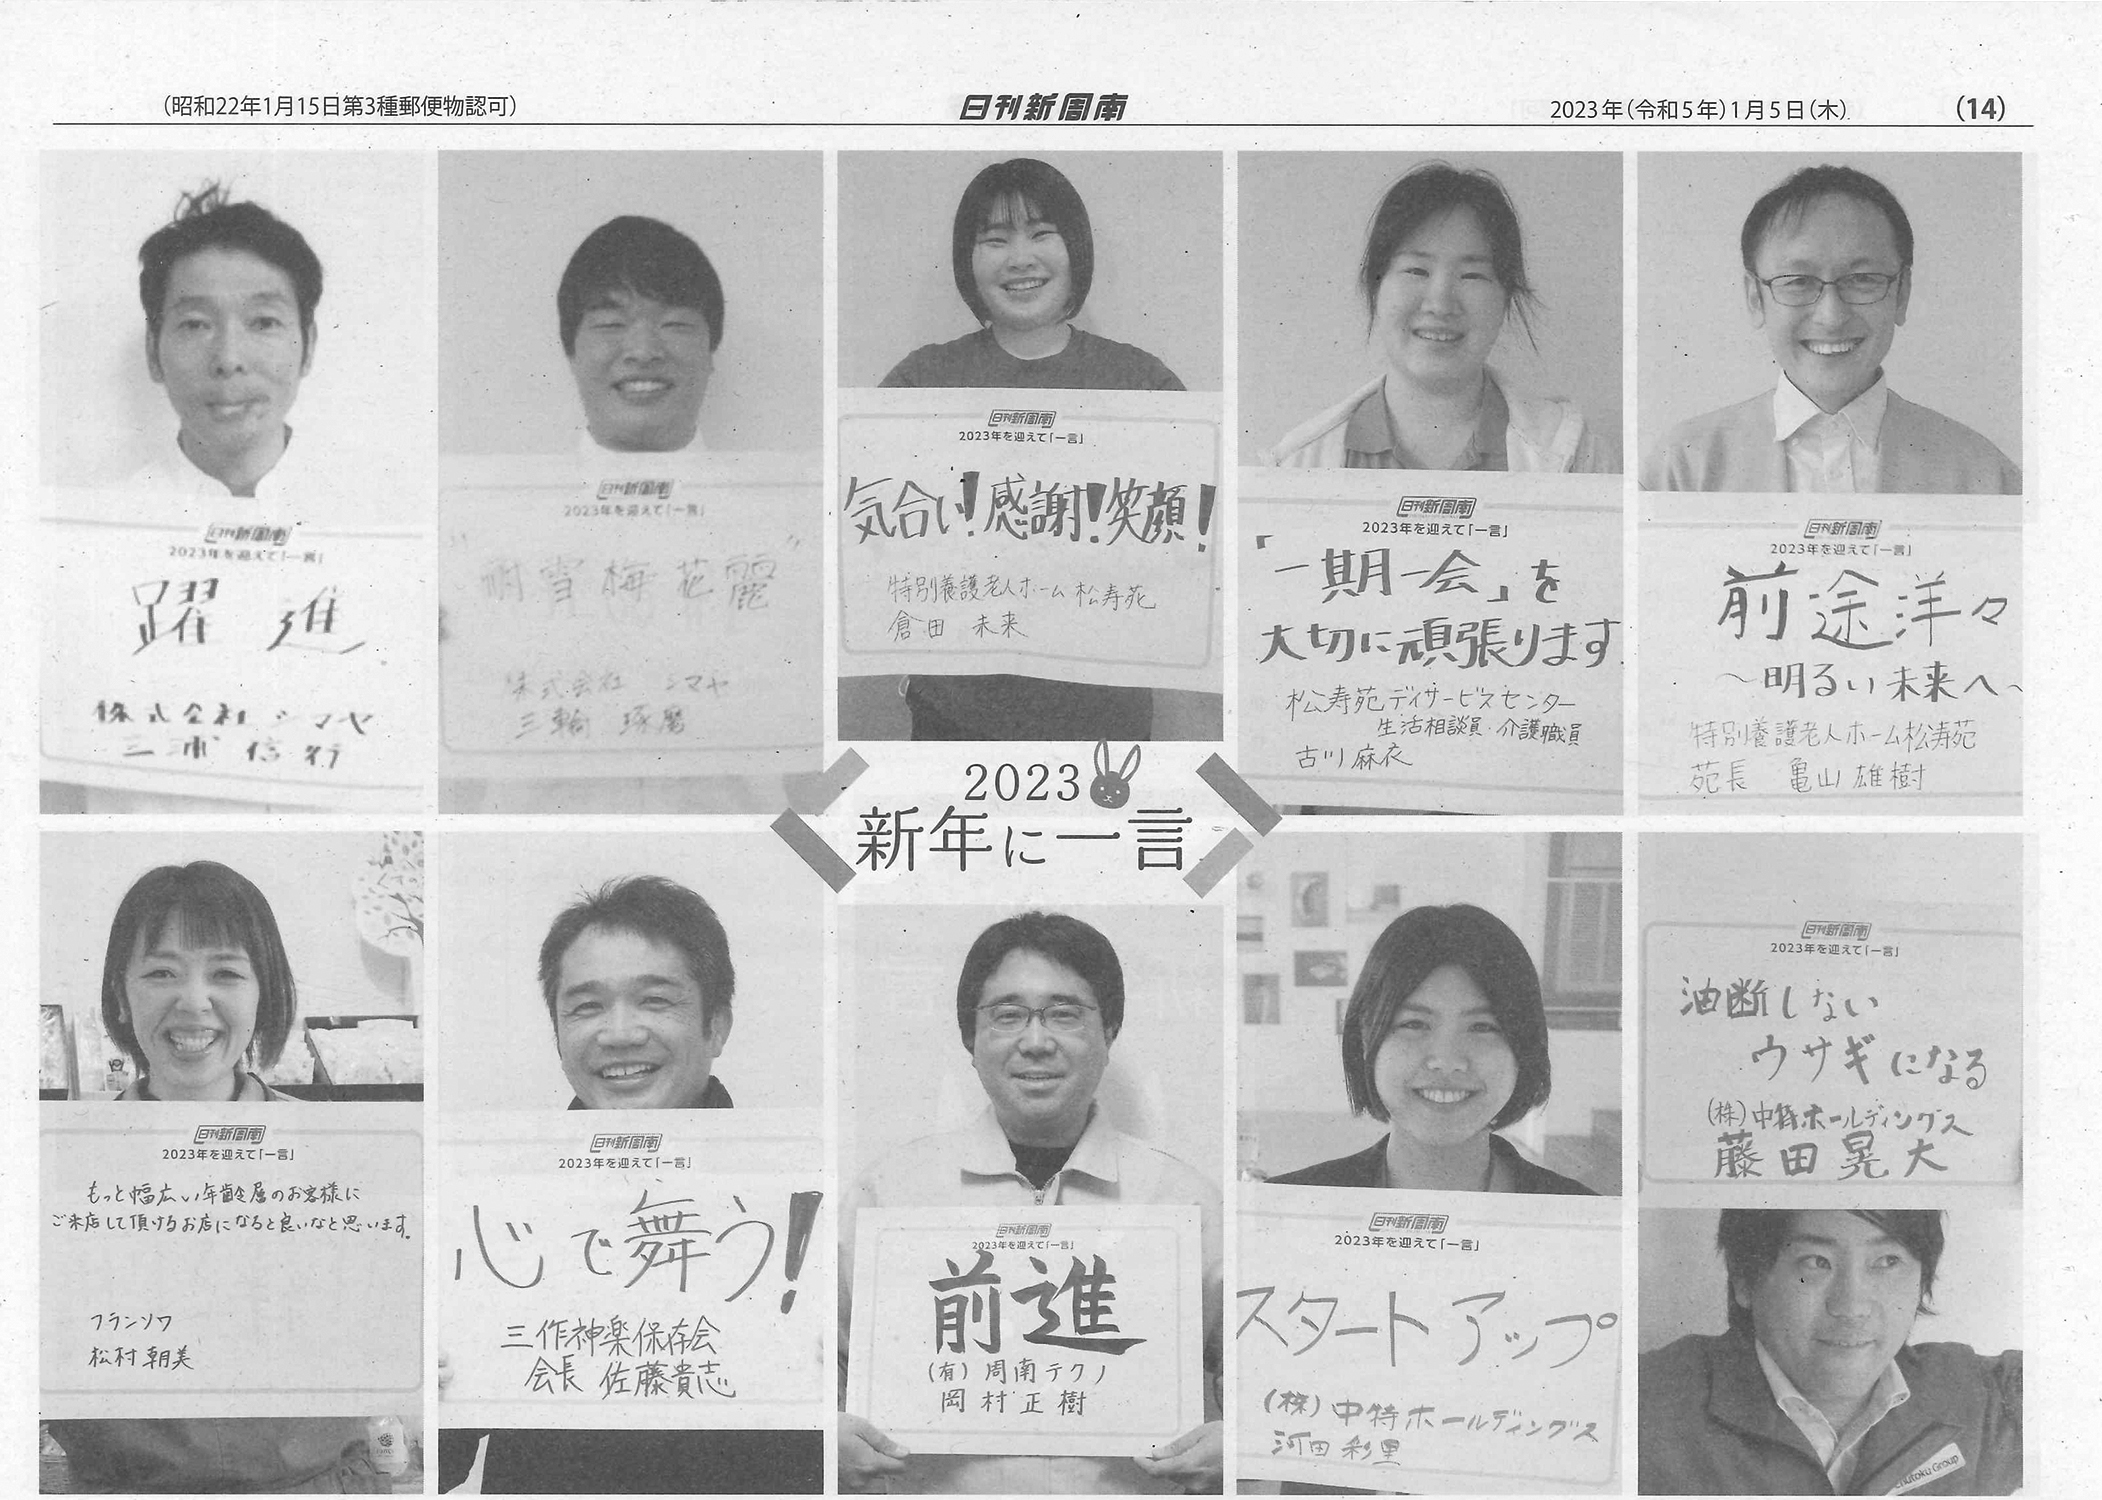 (昭和22年1月15日第3種郵便物認可)
日刊新周南
2023年(令和5年)1月5日(木)
(14)
日刊新周南
2023年を迎えて「一言」
躍進
株式会社 シマヤ
三浦 信行
日刊新周南
2023年を迎えて「一言」
雪梅花麗
株式会社 シマヤ
三輪 琢磨
日刊新周南
2023年を迎えて「一言」
気合い!感謝!笑顔!
特別養護老人ホーム 松寿苑
倉田 未来
日刊新周南
2023年を迎えて「一言」
「一期一会」を
大切に頑張ります
松寿苑デイサービスセンター
生活相談員・介護職員
古川 麻衣
日刊新周南
2023年を迎えて「一言」
前途洋々
～明るい未来へ～
特別養護老人ホーム松寿苑
苑長 亀山 雄樹
2023
新年に一言
日刊新周南
2023年を迎えて「一言」
もっと幅広い年齢層のお客様に
ご来店して頂けるお店になると良いなと思います。
フランソワ
松村 朝美
日刊新周南
2023年を迎えて「一言」
心で舞う!
三作神楽保存会
会長 佐藤貴志
日刊新周南
2023年を迎えて「一言」
前進
(有)周南テクノ
岡村正樹
日刊新周南
2023年を迎えて「一言」
スタートアップ
(株)中特ホールディングス
河田 彩里
日刊新周南
2023年を迎えて「一言」
油断しない
ウサギになる
(株)中特ホールディングス
藤田晃大
Group